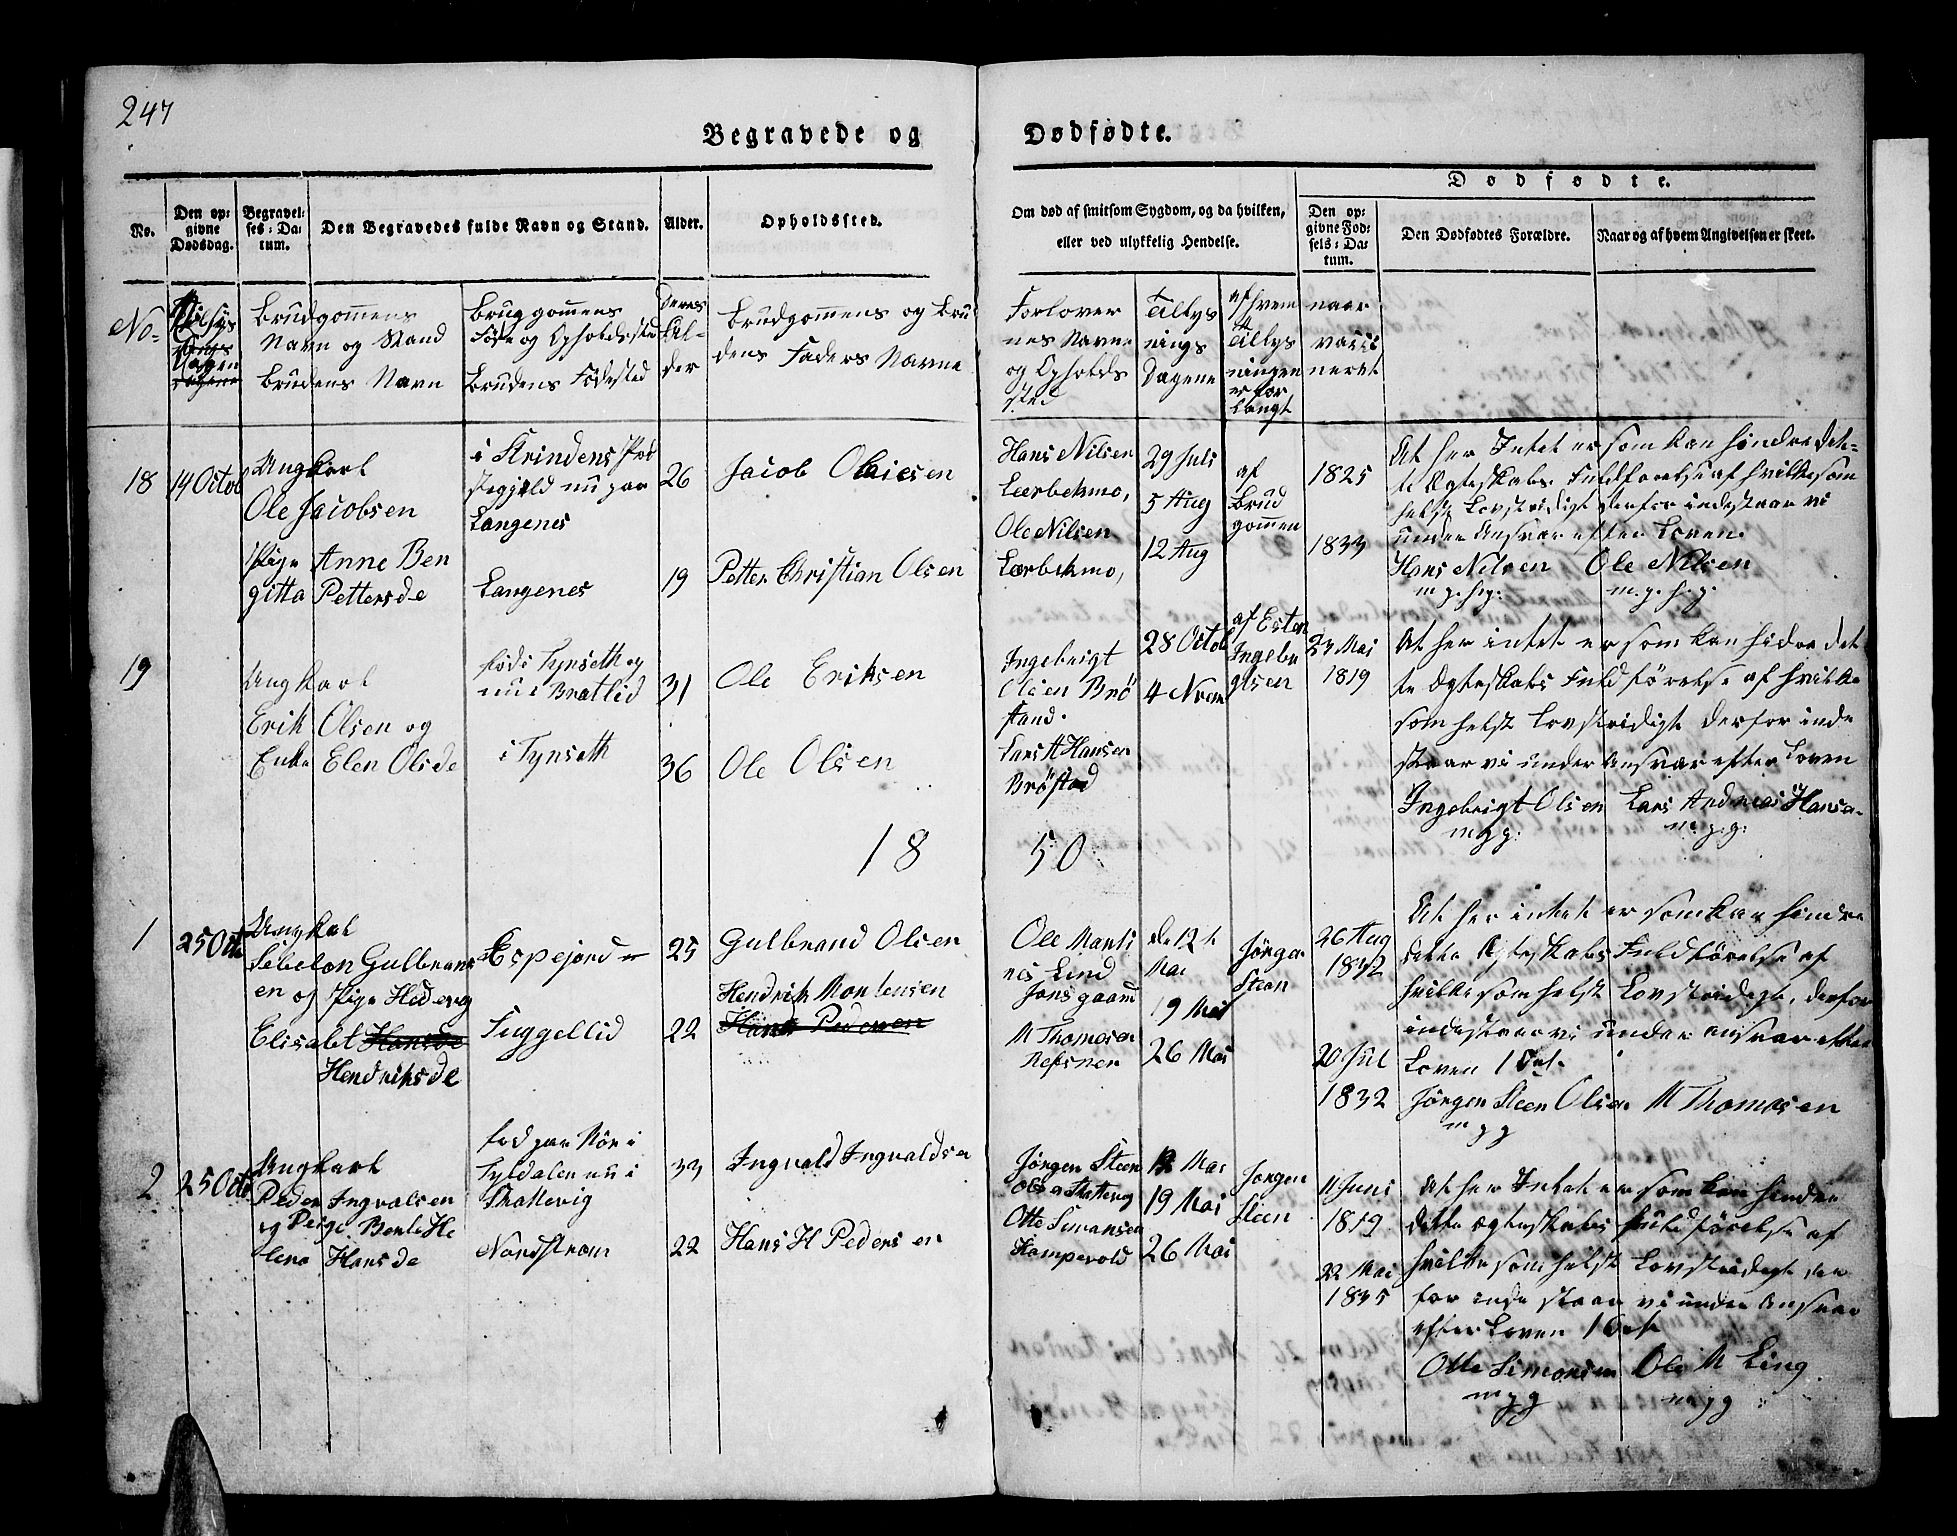 247
Begravede og Dødfødte.
No.
Den opgivne Dødsdag.
Begravelses-Datum.
Den Begravedes fulde Navn og Stand.
Alder.
Opholdssted.
Om død af smitsom Sygdom, og da hvilken,
eller ved ulykkelig Hendelse.
Dødfødte.
Den opgivne Fødsels-Datum.
Den Dødfødtes Forældre.
Naar og af hvem Angivelsen er skeet.
No-
Brudgommens
Navn og Stand
Brudens Navn
Bruggommens
Føde og Opholdssted
Brudens Födested
Deres
Al-
der
Brudgommens og Bru
dens Faders Navne
Forlover
nes Navne
og Opholds
sted
Tillys
nings
Dagene
af hvem
Tillys
ningen
er for
langt
naar
vacci
neret
18
14 Octob
Ungkarl
Ole Jacobsen
Pige Anne Ben
gitta Pettersde
i Strindens Præ
stegjeld nu paa
Langenes
Langenes
26
19
Jacob Olaisen
Petter Christian Olsen
Hans Nilsen
Lærbekmo,
Ole Nilsen
Lærbekmo,
29 Juli
5 Aug
12 Aug
af
Brud
gommen
1825
1833
At her Intet er som kan hindre det-
te Ægteskabs Fuldførelse af hvilkesom
helst Lovstridigt derfor indestaar vi
under Ansvar efter Loven.
Hans Nilsen Ole Nilsen
19
Ungkarl
Erik Olsen og
Enke Elen Olsde
föd i Tynseth og
nu i Bratlid
i Tynseth
31
36
Ole Eriksen
Ole Olsen
Ingebrigt
Olsen Brö
stand.
Lars A Hansen
Bröstad
28 Octob
4 Nvem
af Esten
Ingebr
gtsen
23 Mai
1819
At her intet er som kan hidre det
te Ægteskabs Fuldförelse af hvilke
som helst Lovstridigt derfor inde
staar vi under Ansvar efter Loven
Ingebrigt Olsen Lars Andreas Hansen
18 50
1
25 Octo
Ungkal
Sebelon Gulbrans
en og Pige Hedevig
Elisabet Hansde
Hendriksde
Espejord
Tuggellid
25
22
Gulbrand Olsen
Hendrik Mortensen
Hans Pedersen
Ole Marti
nis Lind
Jonsgaard
M Thomesen
Refsnes
de 12t
Mai
19 Mai
26 Mai
Jörgen
Steen
26 Aug
1832
20 Jul
1832
At her intet er som kan hindre
dette Ægteskabs Fuldförelse af
hvilke som helst Lovstridigt, derfor
indestaar vi under ansvar efter
Loven
Jörgen Steen Olsen M Thomasen
2
25 Octo
Ungkarl
Peder Ingvalsen
og Peige Bente He
lena Hansde
fod paa Rör i
Tyldalen nu i
Skattevig
Nordstrom
33
22
Ingvald Ingvaldsen
Hans H Pedersen
Jörgen Steen
Olsen Skattevig
Otte Simonsen
Kampevold
12 Mai
19 Mai
26 Mai
Jorgen
Steen
11 Juni
1819
22 Mai
1835
At her Intet er som kan hinder
dette Ægteskabs fuldförelse af
hvilke som helst Lovstridigt der
for inde staar vi under Ansvar
efter Loven
Otte Simonsen Ole M Ling